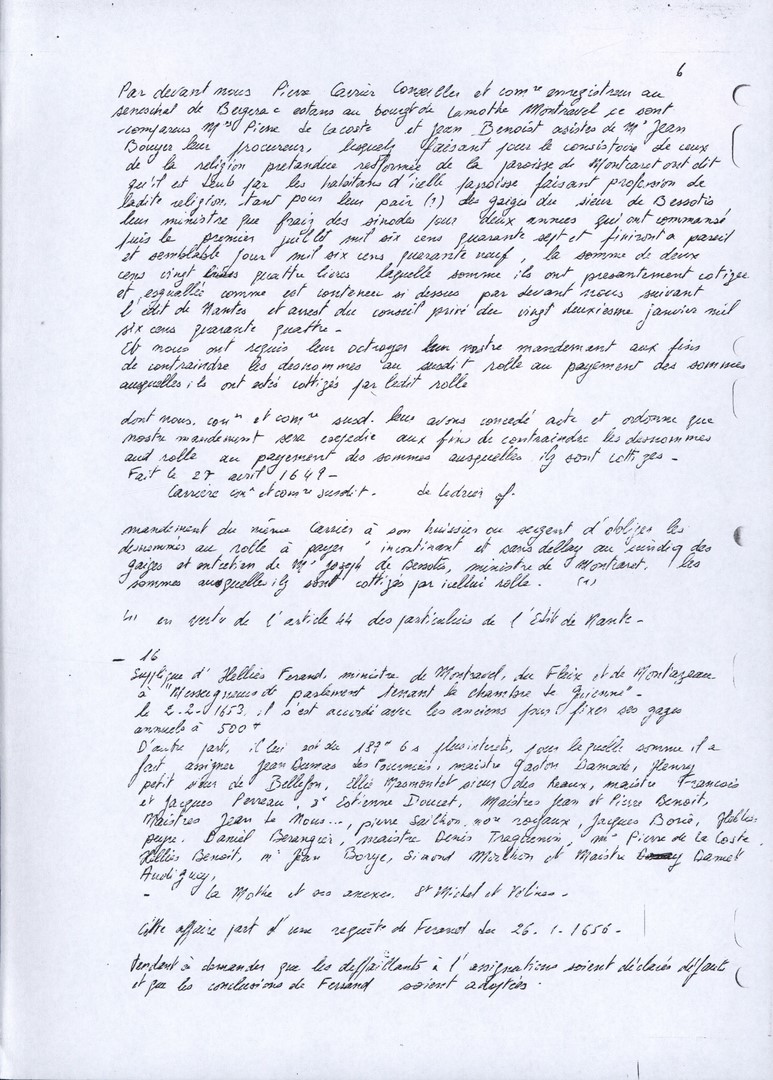 6
Par devant nous Pierre Carrier Conseiller et com re enregistreur au
seneschal de Bergerac estans au bourgt de Lamothe Montravel ce sont
comparus M res Pierre de Lacoste et Jean Benoist asistes de M e Jean
Bouyer leur procureur, lesquels faisant pour le consistoire de ceux
de la religion pretandue resformée de la paroisse de Montcaret ont dit
qu'il est deub par les habitans d'icelle paroisse faisant profession de
ladite religion, tant pour leur pair (?) des gaiges du sieur de Bessotis
leur ministre que fraiz des sinodes pour deux annees qui ont commansé
puis le premier juillet mil six cens quarante sept et finiront a pareil
et semblable jour mil six cens quarante neuf, la somme de deux
cens vingt quattre livres laquelle somme ils ont presantement cotizee
et esguallée comme est contenen si dessus par devant nous suivant
l'edit de Nantes et arrest du conseil privé du vingt deuxiesme janvier mil
six cens quarante quattre -
Et nous ont requis leur octroyer nostre mandement aux fins
de contraindre les desnommes au susdit rolle au payement des sommes
ausquelles ils ont estés cottizés par ledit rolle
dont nous, con er et com re susd. leur avons concedé acte et ordonne que
nostre mandement sera expedie aux fins de contraindre les desnommes
aud rolle au payement des sommes ausquelles ils sont cottizes -
Fait le 27 avril 1649 -
Carriere con er et com re susdit - de
mandement du même Carrier à son huissier ou sergent d'obliger les
desnommés au rolle à payer " incontinant et sans dellay au scindiq des
gaizes et entretien de M e Joseph de Bessotis, ministre de Montcaret, les
sommes ausquelles ils sont cottizés par icellui rolle. (1)
(1) en vertu de l'article 44 des particuliers de l'Edit de Nante -
- 16
Supplique d'Hellies Ferand, ministre de Montravel, du Fleix et de Montazeau
à "Messeigneurs de parlement tenant la chambre de Guienne" -
le 2-2-1653, il s'est accordé avec les anciens pour fixer ses gages
annuels à 500 #
D'autre part, il lui est du 189 # 6 s plus interets, pour laquelle somme il a
fait assigner Jean Dumas des Tournieis, maistre Gaston Damade, Henry
petit sieur de Bellefon, Ellie Masmontet sieur des Reaux, maistre Francois
et Jacques Perreau, Estienne Doucet, Maistres Jean et Pierre Benoit,
Maistres Jean Le Nous..., pierre Sailhon, no re royaux, Jacques Borie, Hellies
peyre, Daniel Berangier, maistre Denis Traquenin, m e Pierre de la Coste,
Hellies Benoit, m e Jean Borye, Simond Mailhon et Maistre Daniel
Audiguey,
- La Mothe et ses annexes, St Michel et Vélines -
Cette affaire part d'une requête de Ferand du 26-1-1656 -
Tendant à demander que les deffaillants à l'assignations soient déclarés défauts
et que les conclusions de Ferrand soient adoptées.